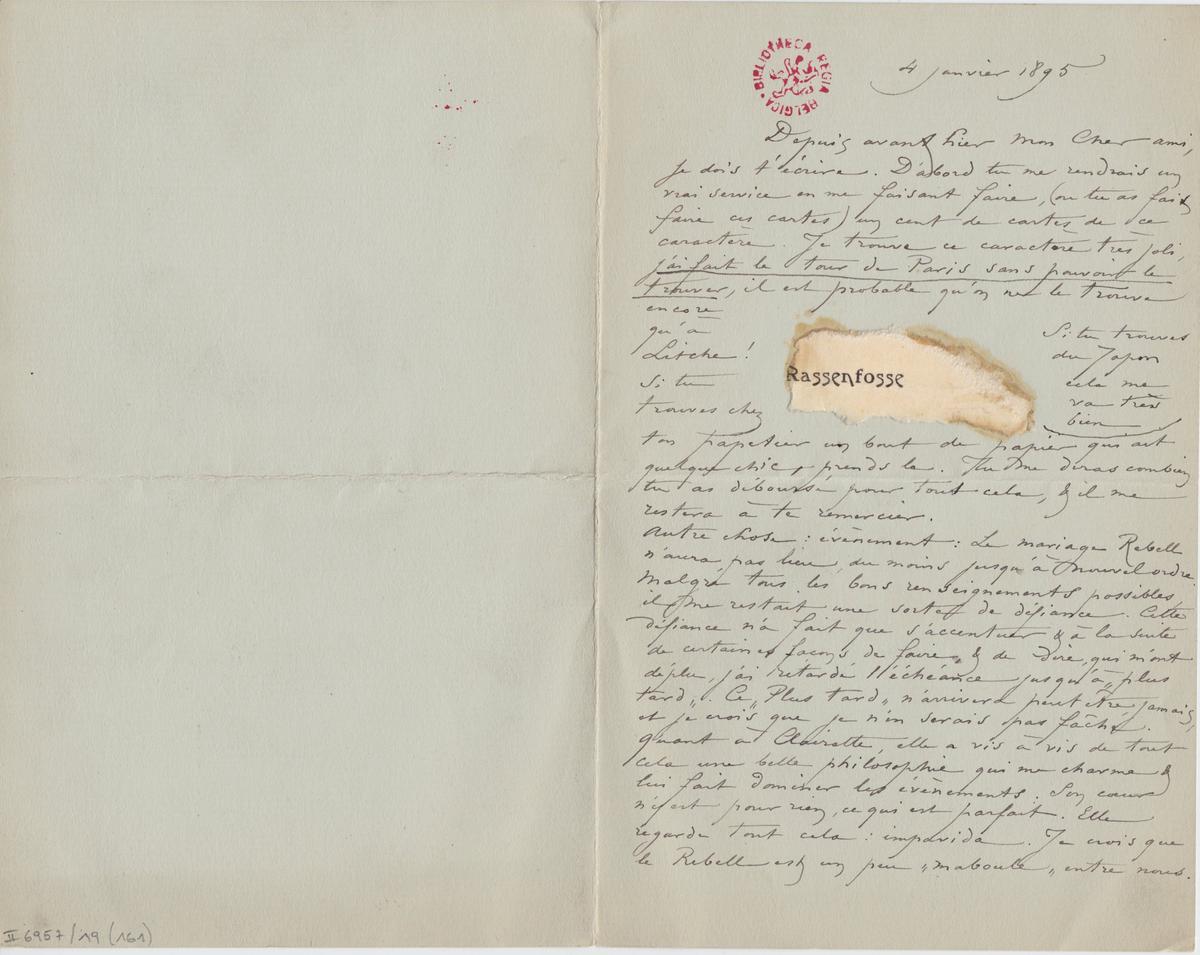 BIBLIOTHECA REGIA BELGICA
4 janvier 1895
Depuis avant hier mon Cher ami,
je dois t'écrire. D'abord tu me rendrais un
vrai service en me faisant faire, (ou tu as fait
faire ces cartes) un cent de cartes de ce
caractère. Je trouve ce caractère très joli,
j'ai fait le tour de Paris sans pouvoir le
trouver, il est probable qu'on ne le trouve
encore
qu'à
Litche !
Si tu
trouves chez
Rassenfosse
Si tu trouves
du Japon
cela me
va très
bien
ton papetier un bout de papier qui ait
quelque chic, prends le. Tu me diras combien
tu as déboursé pour tout cela, & il me
restera à te remercier.
Autre chose : évènement : Le mariage Rebell
n'aura pas lieu, du moins jusqu'à nouvel ordre.
Malgré tous les bons renseignements possibles,
il me restait une sorte de défiance. Cette
défiance n'a fait que s'accentuer & à la suite
de certaines façons de faire, & de dire, qui m'ont
déplu, j'ai retardé l'échéance jusqu'à „plus
tard„. Ce „Plus tard„ n'arrivera peut être jamais,
et je crois que je n'en serais pas fâché.
quant à Clairette, elle a vis à vis de tout
cela une belle philosophie qui me charme &
lui fait dominer les évènements. Son cœur
n'est pour rien, ce qui est parfait. Elle
regarde tout cela : impavida. Je crois que
le Rebell est un peu „maboule„ entre nous.
II 6957/19 (161)